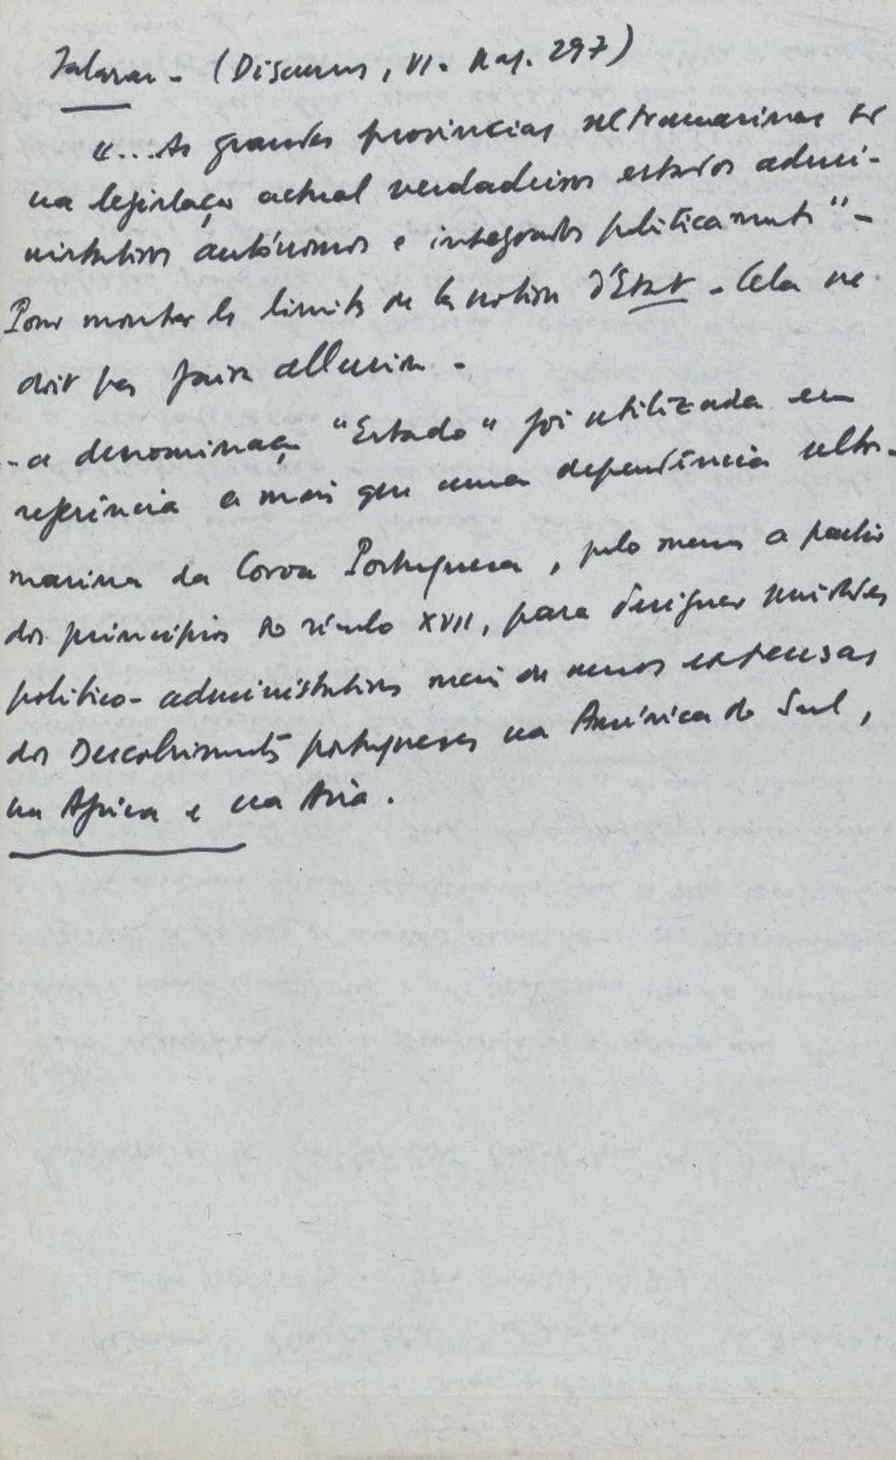 Salazar - (Discursos, VI - Pag. 297)
"... As grandes provincias ultramarinas
na legislação actual verdadeiros estados admi-
nistrativos autónomos e integrados politicamente" -
Pour montrer les limites de la notion d'Etat - Cela ne
doit pas faire allusion -
- a denominação "Estado" foi utilizada em
referência a mais que uma dependência ultra-
marina da Coroa Portuguesa, pelo menos a partir
dos princípios do século XVII, para designar unidades
politico-administrativas mais ou menos extensas
dos Descobrimentos portugueses na América do Sul,
na Africa e na Asia.